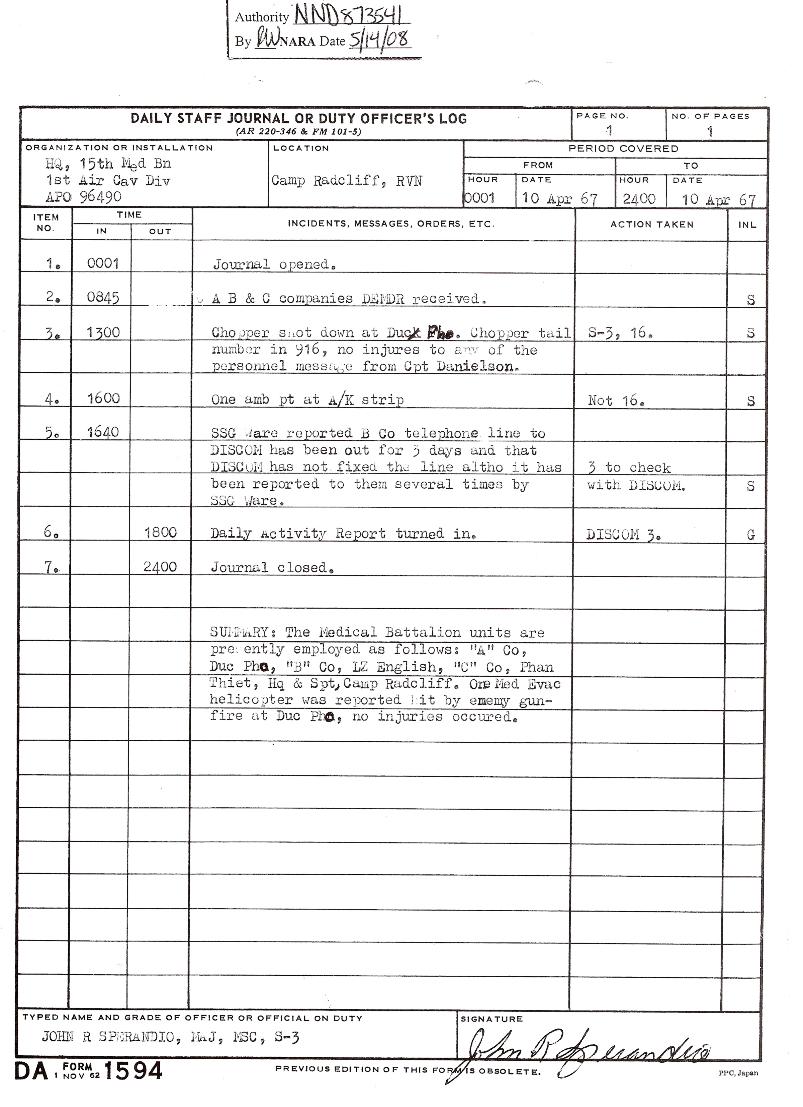 Authority NND873541
By RW NARA Date 5/14/08
DAILY STAFF JOURNAL OR DUTY OFFICER'S LOG
(AR 220-346 & FM 101-5)
PAGE NO.
1
NO. OF PAGES
1
ORGANIZATION OR INSTALLATION
HQ, 15th Med Bn
1st Air Cav Div
APO 96490
LOCATION
Camp Radcliff, RVN
PERIOD COVERED
FROM
TO
HOUR
DATE
HOUR
DATE
0001
10 Apr 67
2400
10 Apr 67
ITEM NO.
TIME
IN
OUT
INCIDENTS, MESSAGES, ORDERS, ETC.
ACTION TAKEN
INL
1. 0001 Journal opened.
2. 0845 A B & C companies DEMDR received. S
3. 1300 Chopper shot down at Duck Pho. Chopper tail S-3, 16. S
number in 916, no injures to any of the
personnel message from Cpt Danielson.
4. 1600 One amb pt at A/K strip Not 16. S
5. 1640 SSG Ware reported B Co telephone line to
DISCOM has been out for 3 days and that
DISCOM has not fixed the line altho it has 3 to check
been reported to them several times by with DISCOM. S
SSG Ware.
6. 1800 Daily Activity Report turned in. DISCOM 3. G
7. 2400 Journal closed.
SUMMARY: The Medical Battalion units are
presently employed as follows: "A" Co,
Duc Pho, "B" Co, LZ English, "C" Co, Phan
Thiet, Hq & Spt, Camp Radcliff. One Med Evac
helicopter was reported hit by ememy gun-
fire at Duc Pho, no injuries occured.
TYPED NAME AND GRADE OF OFFICER OR OFFICIAL ON DUTY
JOHN R SPERANDIO, MAJ, MSC, S-3
SIGNATURE
John R Sperandio
DA FORM 1 NOV 62 1594
PREVIOUS EDITION OF THIS FORM IS OBSOLETE.
PPC, Japan